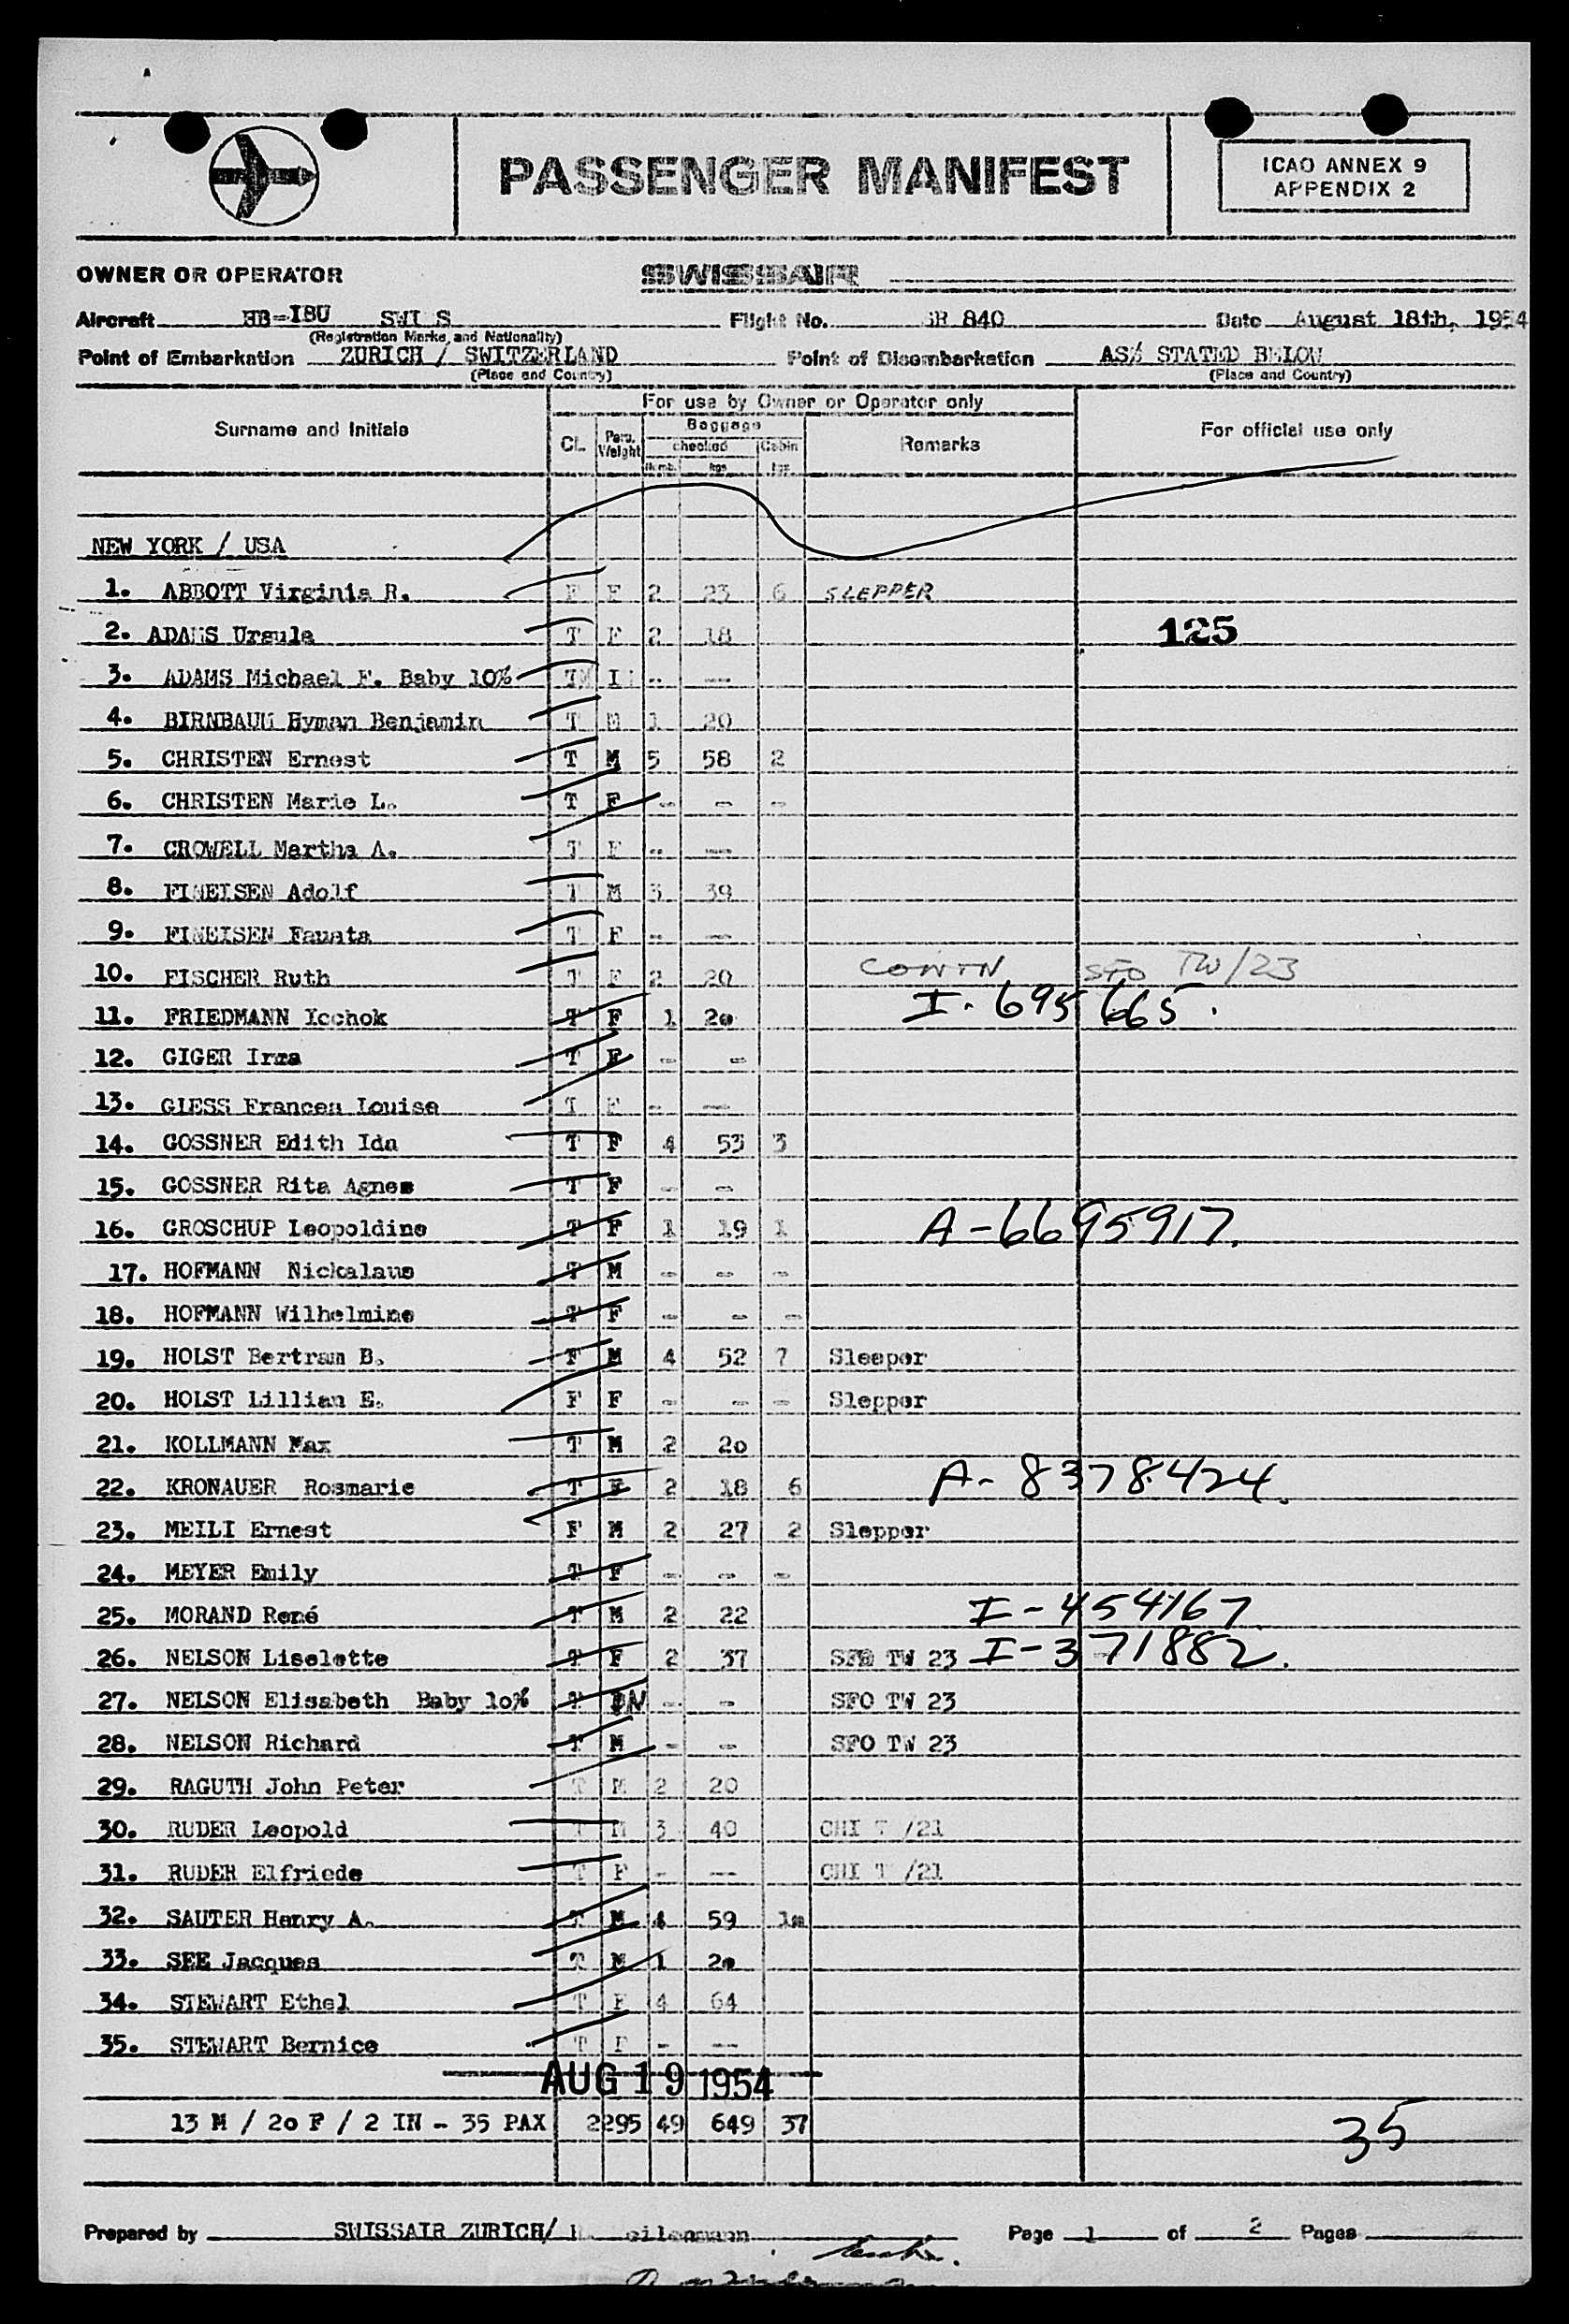 PASSENGER MANIFEST
ICAO ANNEX 9
APPENDIX 2
OWNER OR OPERATOR SWISSAIR
Aircraft HB-IBU SWI S Flight No. SR 840 Date August 18th, 1954
(Registration Marks, and Nationality)
Point of Embarkation ZURICH / SWITZERLAND Point of Disembarkation AS% STATED BELOW
(Place and Country) (Place and Country)
For use by Owner or Operator only
Surname and Initials CL. Pers. Weight Baggage checked Numb. kgs Cabin kgs Remarks For official use only
NEW YORK / USA
1. ABBOTT Virginia R. F F 2 23 6 SLEPPER
2. ADAMS Ursula T F 2 18 125
3. ADAMS Michael F. Baby 10% T I - --
4. BIRNBAUM Hyman Benjamin T M 1 20
5. CHRISTEN Ernest T M 5 58 2
6. CHRISTEN Marie L. T F - - -
7. CROWELL Martha A. T F - --
8. FINEISEN Adolf T M 3 39
9. FINEISEN Fausta T F - --
10. FISCHER Ruth T F 2 20 CONTN SFO TW/23
11. FRIEDMANN Icchok T F 1 2o I-695665.
12. GIGER Irma T F - -
13. GIESS Frances Louise T F - --
14. GOSSNER Edith Ida T F 4 53 3
15. GOSSNER Rita Agnes T F - -
16. GROSCHUP Leopoldine T F 1 19 1 A-6695917.
17. HOFMANN Nickalaus T M - - -
18. HOFMANN Wilhelmine T F - - -
19. HOLST Bertram B. F M 4 52 7 Sleeper
20. HOLST Lillian E. F F - - - Slepper
21. KOLLMANN Max T M 2 2o
22. KRONAUER Rosmarie T F 2 18 6 A-8378424.
23. MEILI Ernest F M 2 27 2 Slepper
24. MEYER Emily T F - - -
25. MORAND René T M 2 22 I-454167
26. NELSON Liselotte T F 2 37 SFO TW 23 I-371882.
27. NELSON Elisabeth Baby 1o% T IN - - SFO TW 23
28. NELSON Richard T M - - SFO TW 23
29. RAGUTH John Peter T M 2 20
30. RUDER Leopold T M 3 40 CHI T /21
31. RUDER Elfriede T F - -- CHI T /21
32. SAUTER Henry A. T M 4 59 1o
33. SEE Jacques T M 1 2o
34. STEWART Ethel T F 4 64
35. STEWART Bernice T F - --
AUG 19 1954
13 M / 2o F / 2 IN - 35 PAX 2295 49 649 37 35
Prepared by SWISSAIR ZURICH/ Page 1 of 2 Pages